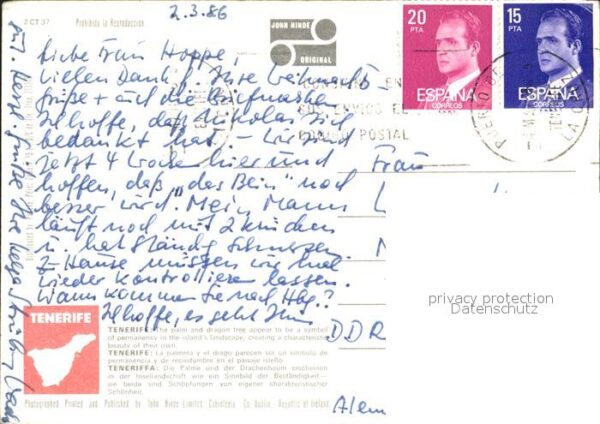 2 CT 37
Prohibida la Reproduccion
2.3.86
JOHN HINDE
ORIGINAL
20
PTA
ESPAÑA
CORREOS
15
PTA
ESPAÑA
CORREOS
PUERTO DE LA
POSTAL
Liebe Frau Hoppe,
vielen Dank f. Ihre Weihnachts-
grüße + auf die Briefmarken
Ich hoffe, daß Nikolas sich
bedankt hat. – Wir sind
jetzt 4 Wochen hier und
hoffen, daß „das Bein" noch
besser wird. Mein Mann
läuft noch mit 2 Krücken
u. hat ständig Schmerzen.
Z. Hause müssen wir mal
wieder kontrollieren lassen.
Wann kommen Sie nach Hbg.?
Ich hoffe, es geht Ihnen
gut. Herzl. Grüße Ihre Helga
Frau
DDR
Alem
privacy protection
Datenschutz
TENERIFE
TENERIFE: The palm and dragon tree appear to be a symbol
of permanency in the island's landscape, creating a characteristic
beauty of their own.
TENERIFE: La palmera y el drago parecen ser un simbolo de
permanencia y de reciedumbre en el paisaje isleño.
TENERIFFA: Die Palme und der Drachenbaum erscheinen
in der Insellandschaft wie ein Sinnbild der Beständigkeit —
sie beide sind Schöpfungen von eigener charakteristischer
Schönheit.
Photographed, Printed and Published by John Hinde Limited, Cabinteely, Co. Dublin, Republic of Ireland